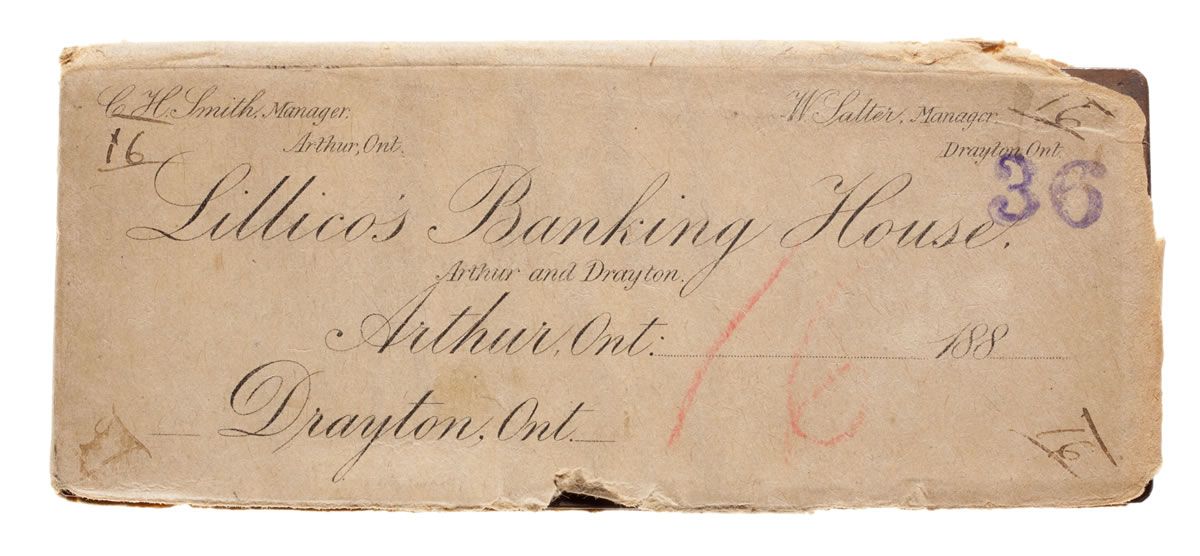 C H. Smith, Manager.
Arthur, Ont.
16
W Salter, Manager.
Drayton Ont.
16
36
Lillico's Banking House.
Arthur and Drayton.
Arthur, Ont. 188
Drayton, Ont.
16
16